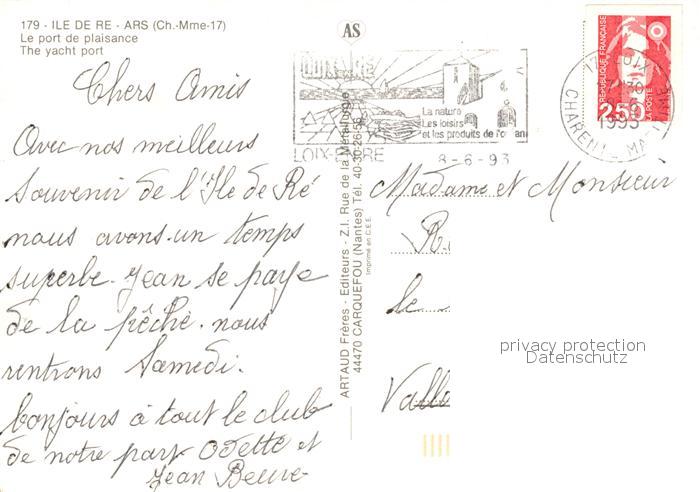 179 - ILE DE RE - ARS (Ch.-Mme-17)
Le port de plaisance
The yacht port
AS
Chers Amis
Avec nos meilleurs
souvenir de l'Ile de Ré
nous avons un temps
superbe. Jean se paye
de la pêche. nous
rentrons Samedi.
bonjours à tout le club
de notre part Odette et
Jean
ARTAUD Frères - Editeurs - Z.I. Rue de la Métallurgie
44470 CARQUEFOU (Nantes) Tél. 40-30-26-56
Imprimé en C.E.E.
La nature
Les loisirs
et les produits de l'
LOIX- RE
8-6-93
REPUBLIQUE FRANÇAISE
2,50
LA POSTE
1993
CHARENT MARITIME
Madame et Monsieur
R.
Le
Vall
privacy protection
Datenschutz